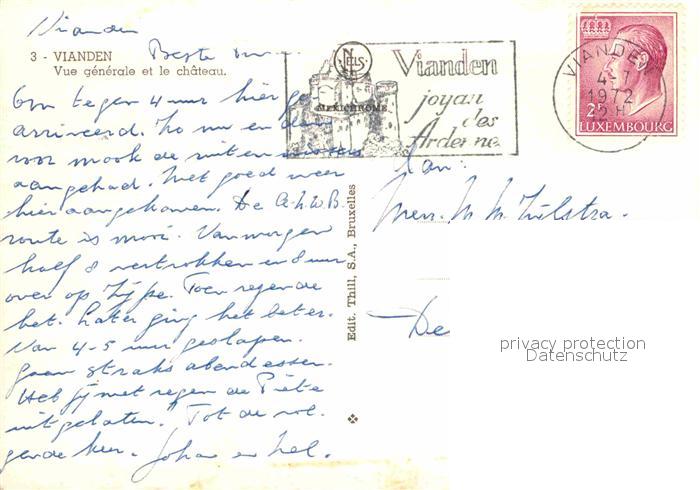 Vianden
3 - VIANDEN
Vue générale et le château.
Beste
Om tegen 4 uur hier
arriveerd. Zo nu en dan
voor mook de ruitenwissers
aangehad. Met goed weer
hier aangekomen. De A.N.W.B.
route is mooi. Vanmorgen
half 8 vertrokken en 8 uur
over op Zijpe. Toen regende
het. Later ging het beter.
Van 4-5 uur geslapen.
Gaan straks avondeten.
Heb jij met regen de Piete
uitgelaten. Tot de vol-
gende keer. Johan en Nel.
NELS
Vianden
joyau
des
Ardenne
VIANDEN
4-7
1972
12H
2F
LUXEMBOURG
Aan:
Mevr. M. M. Zijlstra.
De
Edit. Thill, S.A., Bruxelles
privacy protection
Datenschutz